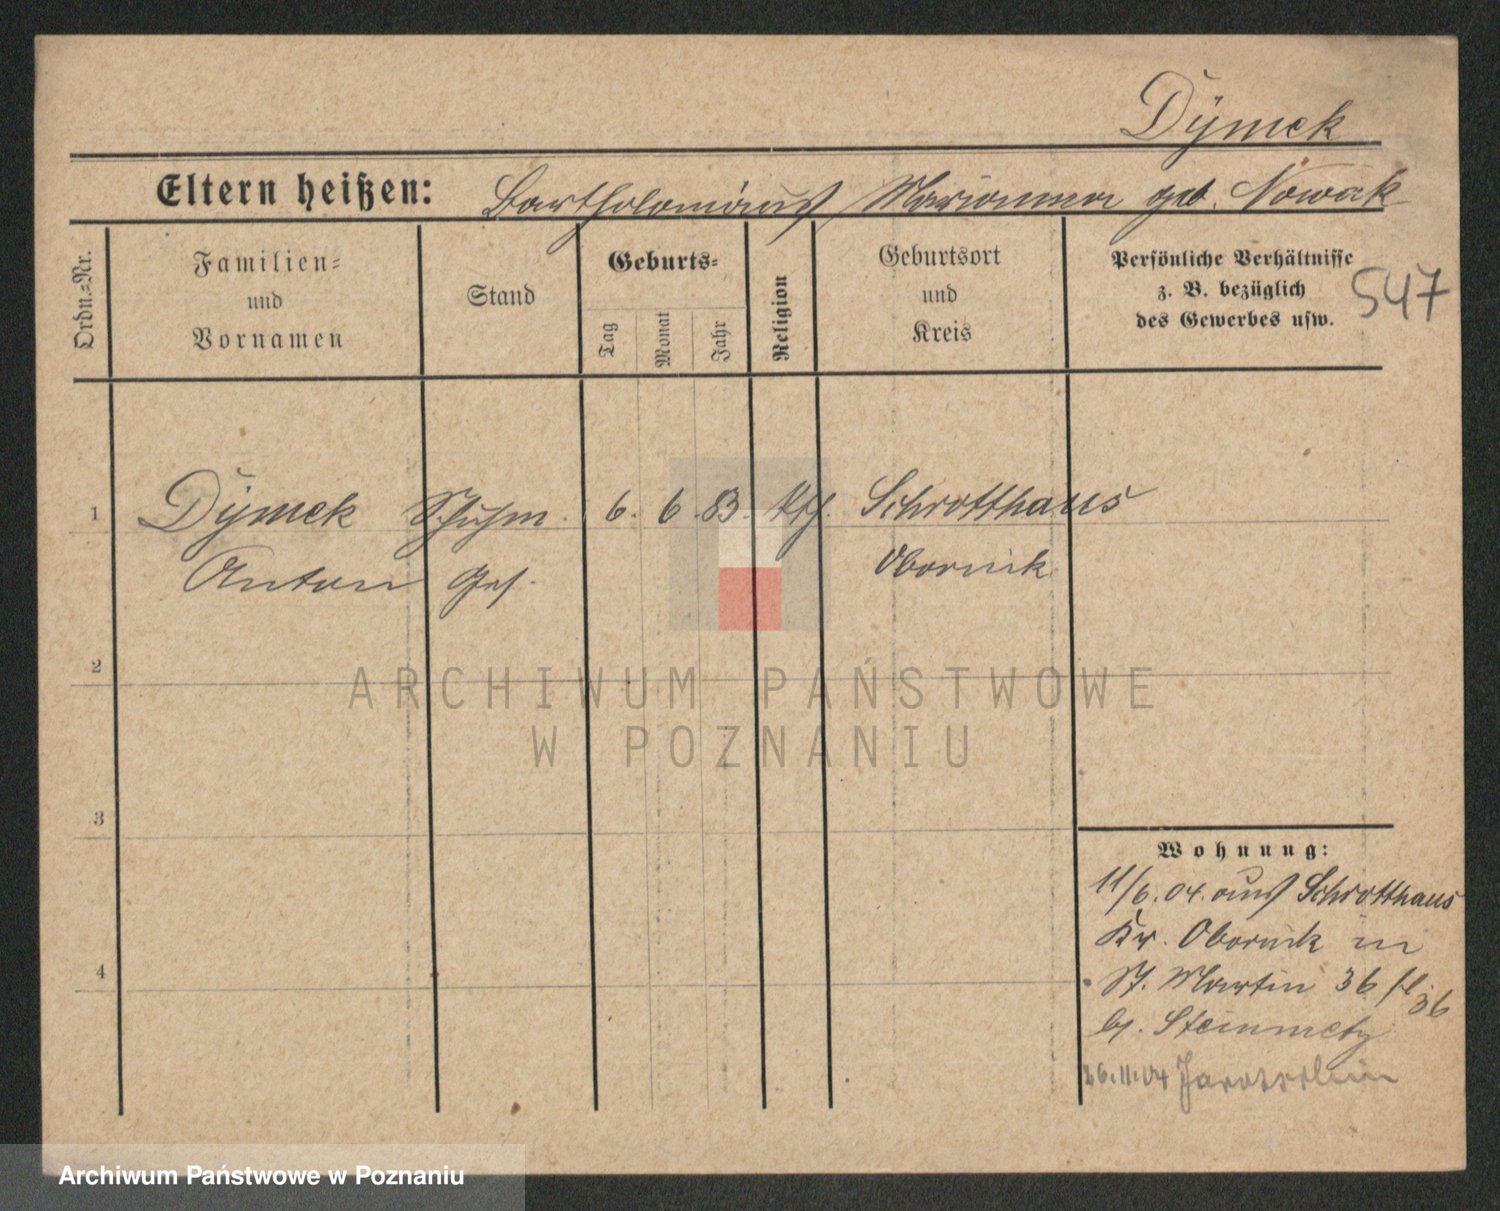 Dÿmek
Eltern heißen: Bartholomäus Marianna geb. Nowak
Ordn.=Nr.
Familien=
und
Vornamen
Stand
Geburts=
Tag
Monat
Jahr
Religion
Geburtsort
und
Kreis
Persönliche Verhältnisse
z. B. bezüglich
des Gewerbes usw.
547
1 Dÿmek Schuhm. 6. 6. 83. kth. Schrotthaus
Anton Ges. Obornik
2
ARCHIWUM PAŃSTWOWE
W POZNANIU
3
4
Wohnung:
11/6.04. aus Schrotthaus
Kr. Obornik in
St. Martin 36
36
b/. Steinmetz
26.11.04
Archiwum Państwowe w Poznaniu